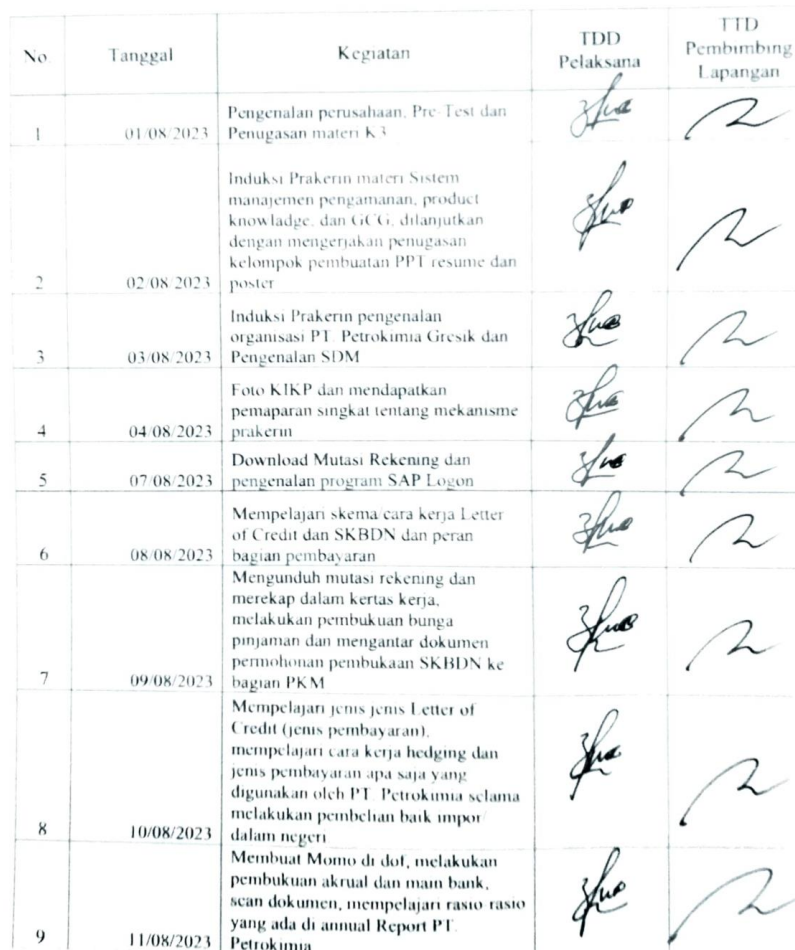 No
Tanggal
Kegiatan
TDD
Pelaksana
TTD
Pembimbing
Lapangan
Pengenalan perusahaan, Pre-Test dan
1 01/08/2023 Penugasan materi K3
Induksi Prakerin materi Sistem
manajemen pengamanan, product
knowladge, dan GCG, dilanjutkan
dengan mengerjakan penugasan
kelompok pembuatan PPT resume dan
2 02/08/2023 poster
Induksi Prakerin pengenalan
organisasi PT. Petrokimia Gresik dan
3 03/08/2023 Pengenalan SDM
Foto KIKP dan mendapatkan
pemaparan singkat tentang mekanisme
4 04/08/2023 prakerin
Download Mutasi Rekening dan
5 07/08/2023 pengenalan program SAP Logon
Mempelajari skema/cara kerja Letter
of Credit dan SKBDN dan peran
6 08/08/2023 bagian pembayaran
Mengunduh mutasi rekening dan
merekap dalam kertas kerja,
melakukan pembukuan bunga
pinjaman dan mengantar dokumen
permohonan pembukaan SKBDN ke
7 09/08/2023 bagian PKM
Mempelajari jenis jenis Letter of
Credit (jenis pembayaran),
mempelajari cara kerja hedging dan
jenis pembayaran apa saja yang
digunakan oleh PT. Petrokimia selama
melakukan pembelian baik impor/
8 10/08/2023 dalam negeri
Membuat Momo di dof, melakukan
pembukuan akrual dan main bank,
scan dokumen, mempelajari rasio rasio
yang ada di annual Report PT.
9 11/08/2023 Petrokimia